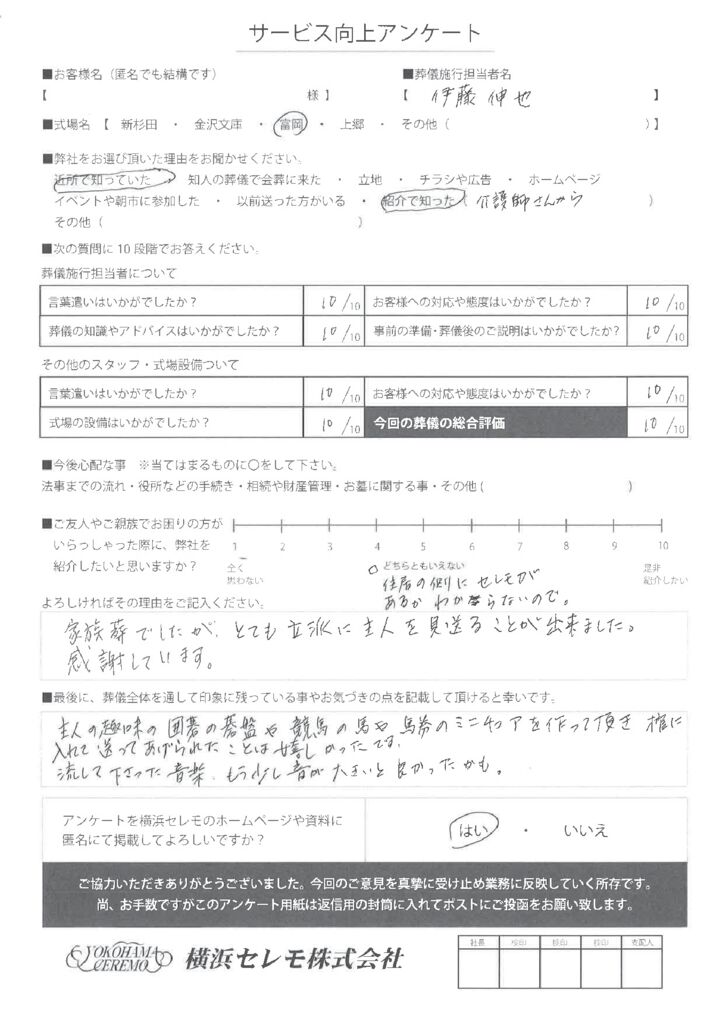 サービス向上アンケート
■お客様名（匿名でも結構です）
【 様】
■葬儀施行担当者名
【 伊藤 伸也 】
■式場名 【 新杉田 ・ 金沢文庫 ・ 富岡 ・ 上郷 ・ その他（ ）】
■弊社をお選び頂いた理由をお聞かせください。
近所で知っていた ・ 知人の葬儀で会葬に来た ・ 立地 ・ チラシや広告 ・ ホームページ
イベントや朝市に参加した ・ 以前送った方がいる ・ 紹介で知った（ 介護師さんから ）
その他（ ）
■次の質問に10段階でお答えください。
葬儀施行担当者について
言葉遣いはいかがでしたか？ 10/10 お客様への対応や態度はいかがでしたか？ 10/10
葬儀の知識やアドバイスはいかがでしたか？ 10/10 事前の準備・葬儀後のご説明はいかがでしたか？ 10/10
その他のスタッフ・式場設備ついて
言葉遣いはいかがでしたか？ 10/10 お客様への対応や態度はいかがでしたか？ 10/10
式場の設備はいかがでしたか？ 10/10 今回の葬儀の総合評価 10/10
■今後心配な事 ※当てはまるものに○をして下さい。
法事までの流れ・役所などの手続き・相続や財産管理・お墓に関する事・その他（ ）
■ご友人やご親族でお困りの方が
いらっしゃった際に、弊社を
紹介したいと思いますか？
1 2 3 4 5 6 7 8 9 10
全く
思わない
どちらともいえない
是非
紹介したい
住居の側にセレモが
あるかわからないので。
よろしければその理由をご記入ください。
家族葬でしたが、とても立派に主人を見送ることが出来ました。
感謝しています。
■最後に、葬儀全体を通して印象に残っている事やお気づきの点を記載して頂けると幸いです。
主人の趣味の囲碁の碁盤や競馬の馬や馬券のミニチュアを作って頂き棺に
入れて送ってあげられたことは嬉しかったです。
流して下さった音楽、もう少し音が大きいと良かったかも。
アンケートを横浜セレモのホームページや資料に
匿名にて掲載してよろしいですか？
はい ・ いいえ
ご協力いただきありがとうございました。今回のご意見を真摯に受け止め業務に反映していく所存です。
尚、お手数ですがこのアンケート用紙は返信用の封筒に入れてポストにご投函をお願い致します。
YOKOHAMA
CEREMO
横浜セレモ株式会社
社長 検印 検印 検印 支配人